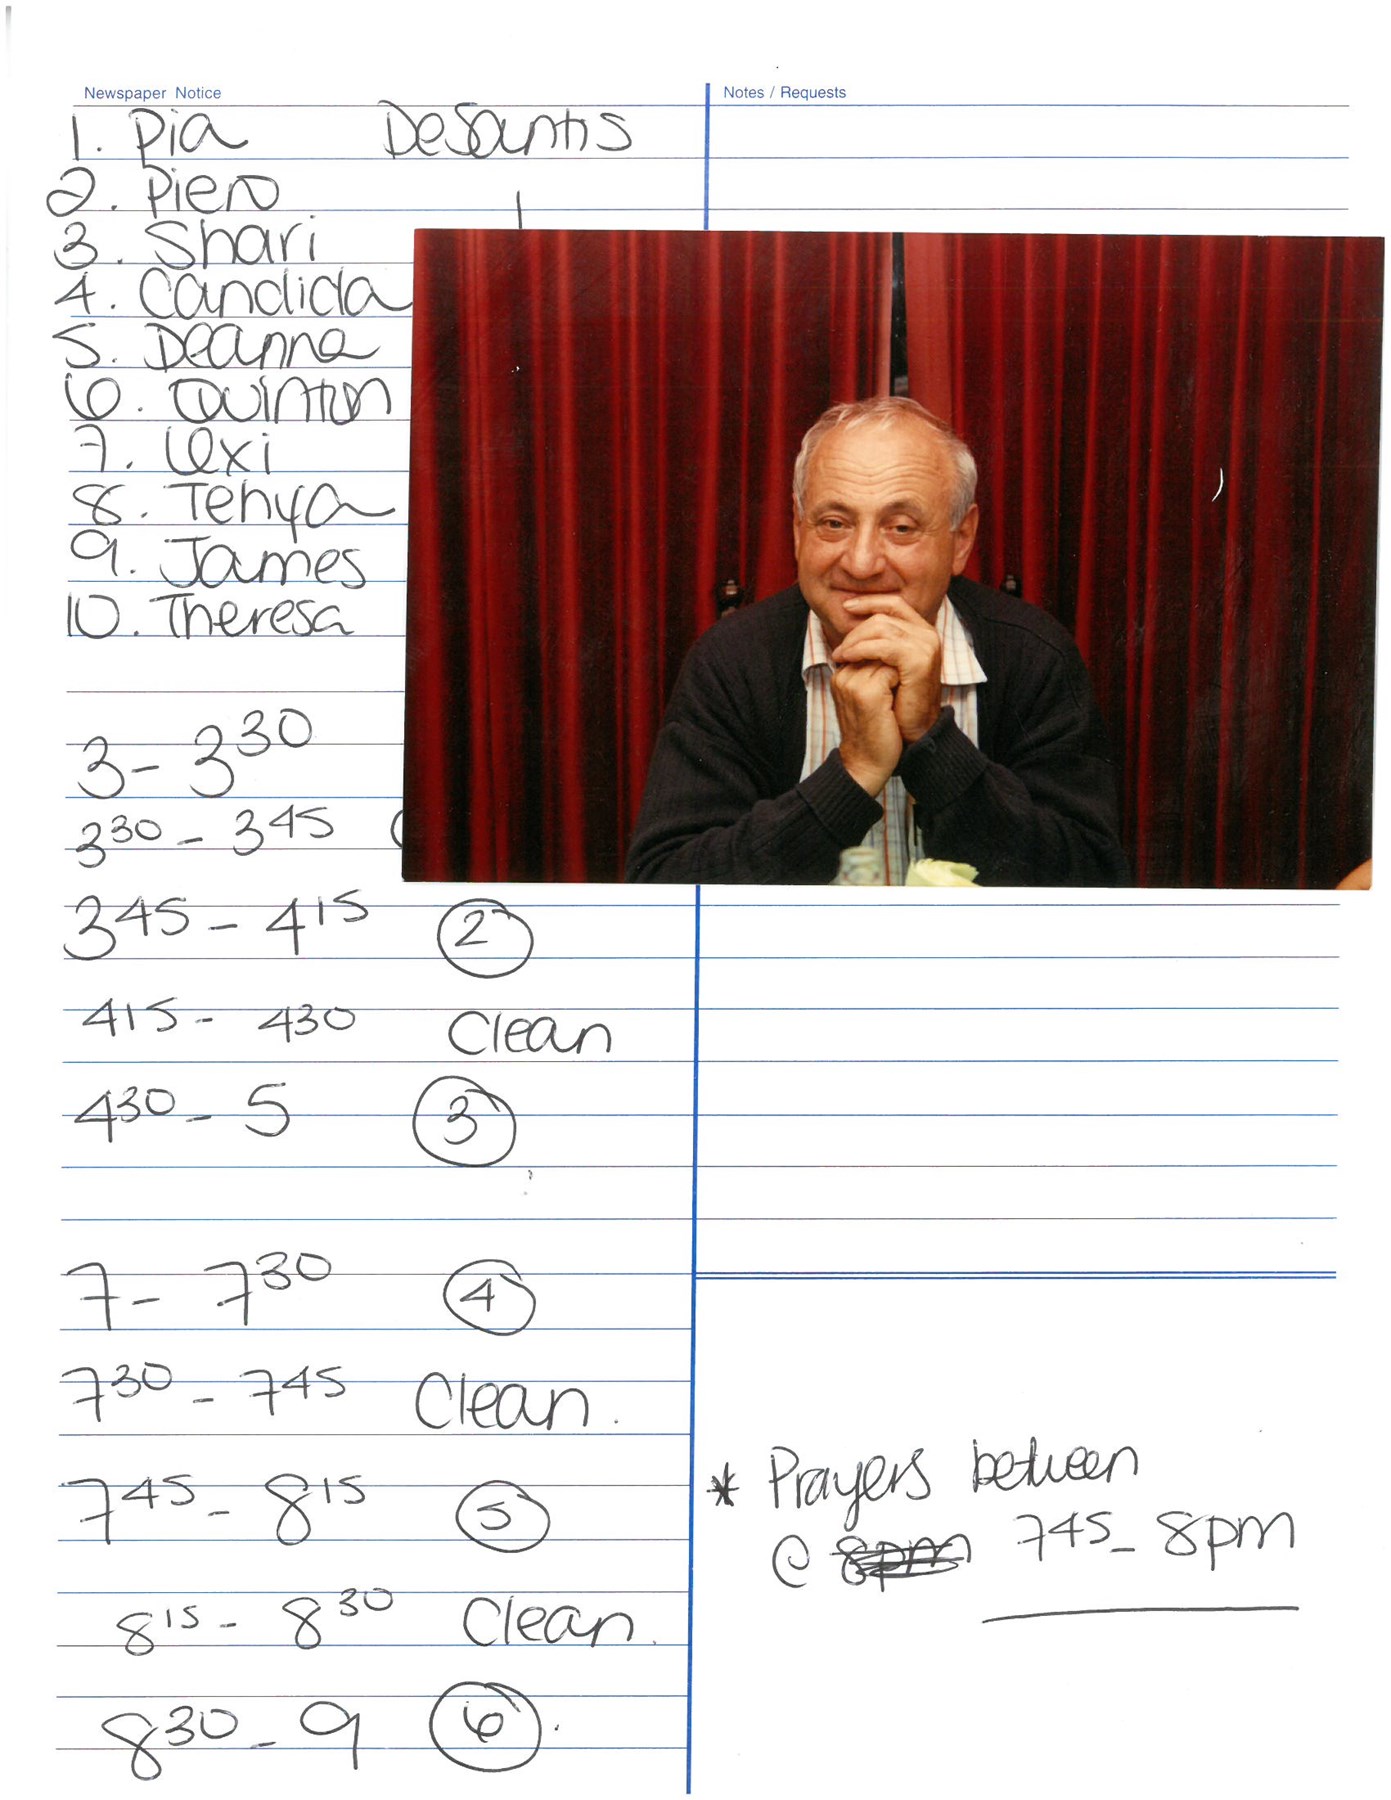 Newspaper Notice
Notes / Requests
1. Pia DeSantis
2. Piero
3. Shari
4. Candida
5. Deanna
6. Quintin
7. Lexi
8. Tenya
9. James
10. Theresa
3 - 3 30
3 30 - 3 45
3 45 - 4 15 2
4 15 - 4 30 Clean
4 30 - 5 3
7 - 7 30 4
7 30 - 7 45 Clean.
7 45 - 8 15 5
8 15 - 8 30 Clean.
8 30 - 9 6.
* Prayers between
@ 8pm 7 45 - 8pm